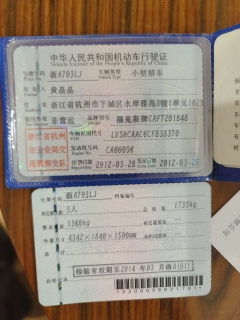 中华人民共和国机动车行驶证
Vehicle License of the People's Republic of China
号牌号码 浙A703LJ 车辆类型 小型轿车
所有人 黄晶晶
住址 浙江省杭州市下城区水岸雅苑
使用性质 非营运 品牌型号 福克斯牌CAF7201B48
浙江省杭州
市公安局交
通警察支队
车辆识别代号 LVSHCKAC6CF838370
发动机号码 CA06056
注册日期 2012-03-28 发证日期 2012-03-28
号牌号码 浙A703LJ 档案编号
5人 总质量 1735kg
整备质量 1360kg
外廓尺寸 4342×1840×1500mm
检验记录
检验有效期至2014年03月浙A